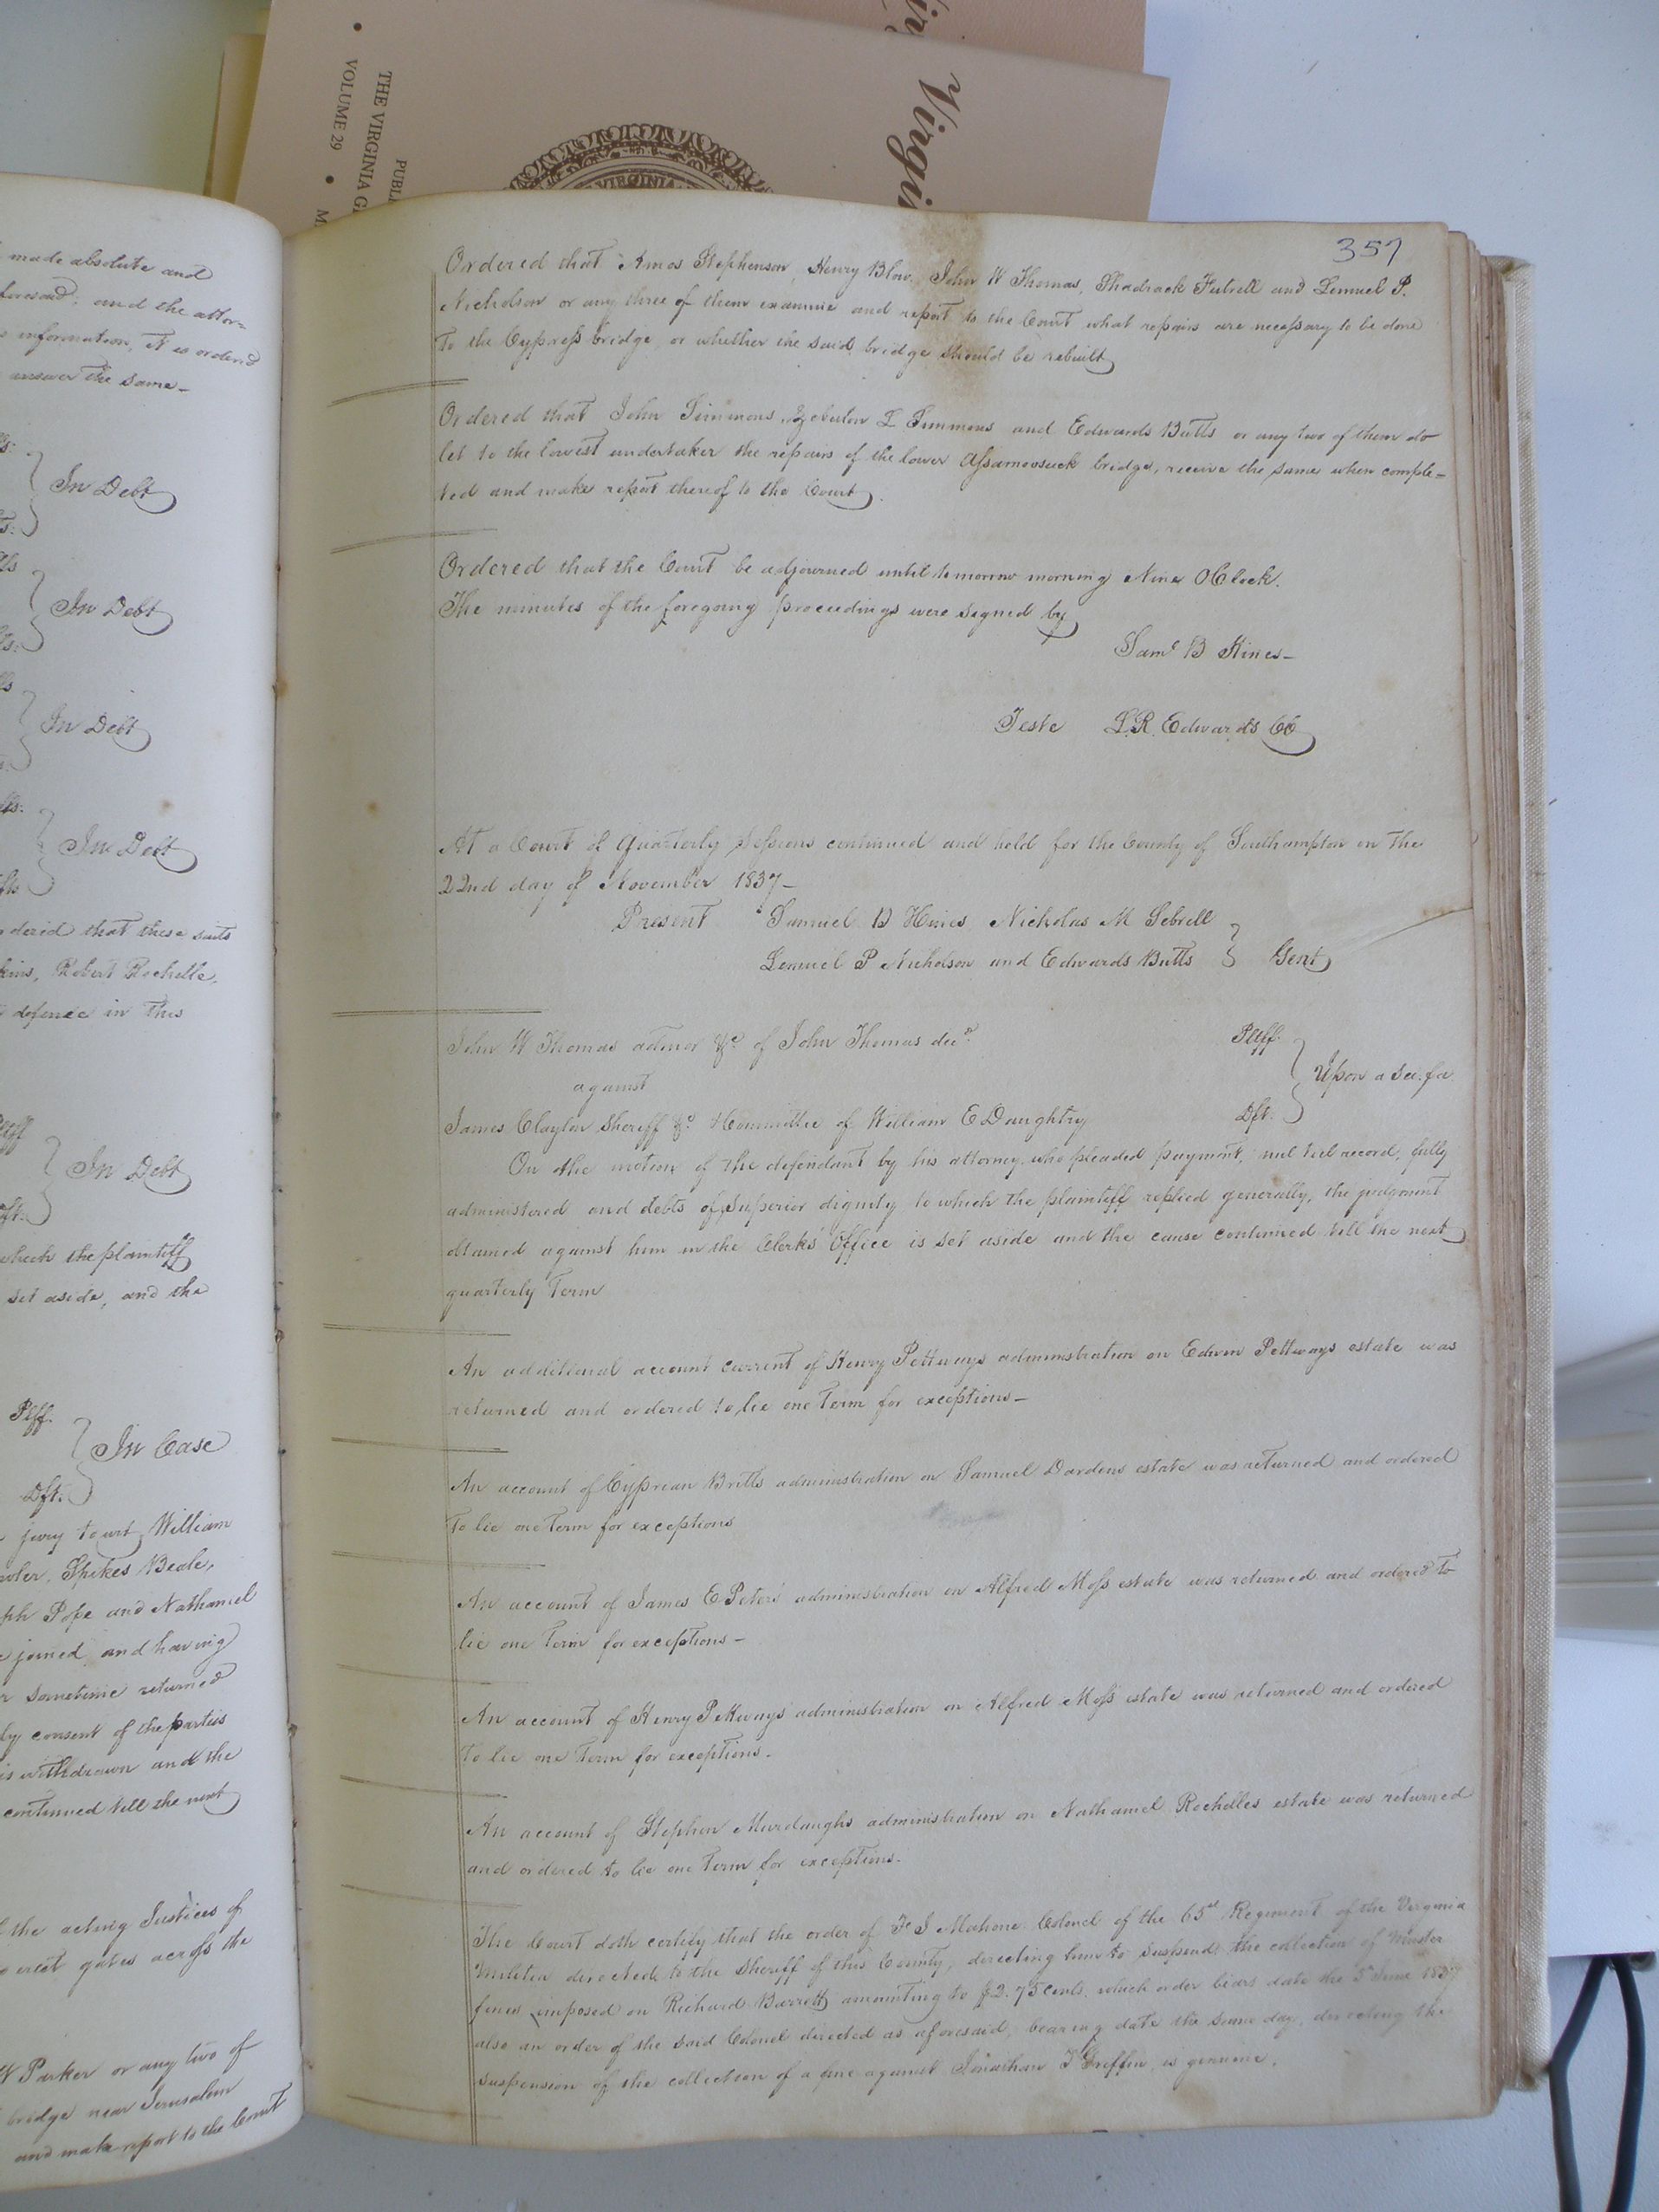 Virgi
THE VIRGINIA G
VOLUME 29 • M
PUBL
VIRGINIA
made absolute and
foresaid; and the attor=
information, it is ordered
answer the same—
In Debt
In Debt
In Debt
In Debt
dered that these suits
kins, Robert Rochelle,
defence in this
In Debt
which the plaintiff
set aside, and the
Plff.
In Case
Dft.
jury to wit, William
Spikes Beale,
ph Pope and Nathaniel
joined, and having
sometime returned
by consent of the parties
is withdrawn and the
continued till the next
the acting Justices of
erect gates across the
W Parker or any two of
bridge near Jerusalem
and make report to the Court
357
Ordered that Amos Stephenson, Henry Blow, John W Thomas, Shadrack Futrell and Lemuel P.
Nicholson or any three of them examine and report to the Court what repairs are necessary to be done
to the Cypress bridge, or whether the said bridge should be rebuilt
Ordered that John Simmons, Zebulon L Simmons and Edwards Butts or any two of them do
let to the lowest undertaker the repairs of the lower Assamoosuck bridge, receive the same when comple=
ted and make report thereof to the Court.
Ordered that the Court be adjourned until tomorrow morning Nine OClock.
The minutes of the foregoing proceedings were signed by
Saml B Hines—
Teste L.R. Edwards CC
At a Court of Quarterly Sessions continued and held for the County of Southampton on the
22nd day of November 1837—
Present Samuel B Hines Nicholas M Sebrell
Lemuel P Nicholson and Edwards Butts } Gent
John W Thomas admor &c of John Thomas decd. Plff.
against } Upon a sci. fa.
James Clayton Sheriff &c Committee of William E Daughtry Dft.
On the motion of the defendant by his attorney, who pleaded payment, nul tiel record, fully
administered and debts of superior dignity to which the plaintiff replied generally, the judgment
obtained against him in the Clerks Office is set aside and the cause continued till the next
quarterly Term
An additional account current of Henry Pettways administration on Edwin Pettways estate was
returned and ordered to lie one Term for exceptions—
An account of Cyprean Britts administration on Samuel Dardens estate was returned and ordered
to lie one Term for exceptions
An account of James E Peters' administration on Alfred Moss estate was returned and ordered to
lie one Term for exceptions—
An account of Henry Pettways administration on Alfred Moss estate was returned and ordered
to lie one Term for exceptions.
An account of Stephen Murdaughs administration on Nathaniel Rochelles estate was returned
and ordered to lie one Term for exceptions.
The Court doth certify that the order of Mahone Colonel of the 65th Regiment of the Virginia
Militia directed to the Sheriff of this County, directing him to suspend the collection of Muster
fines imposed on Richard Barrett amounting to $2.75 cents, which order bears date the 5th June 1837
also an order of the said Colonel directed as aforesaid, bearing date the same day, directing the
suspension of the collection of a fine against Jonathan T Griffin, is genuine.